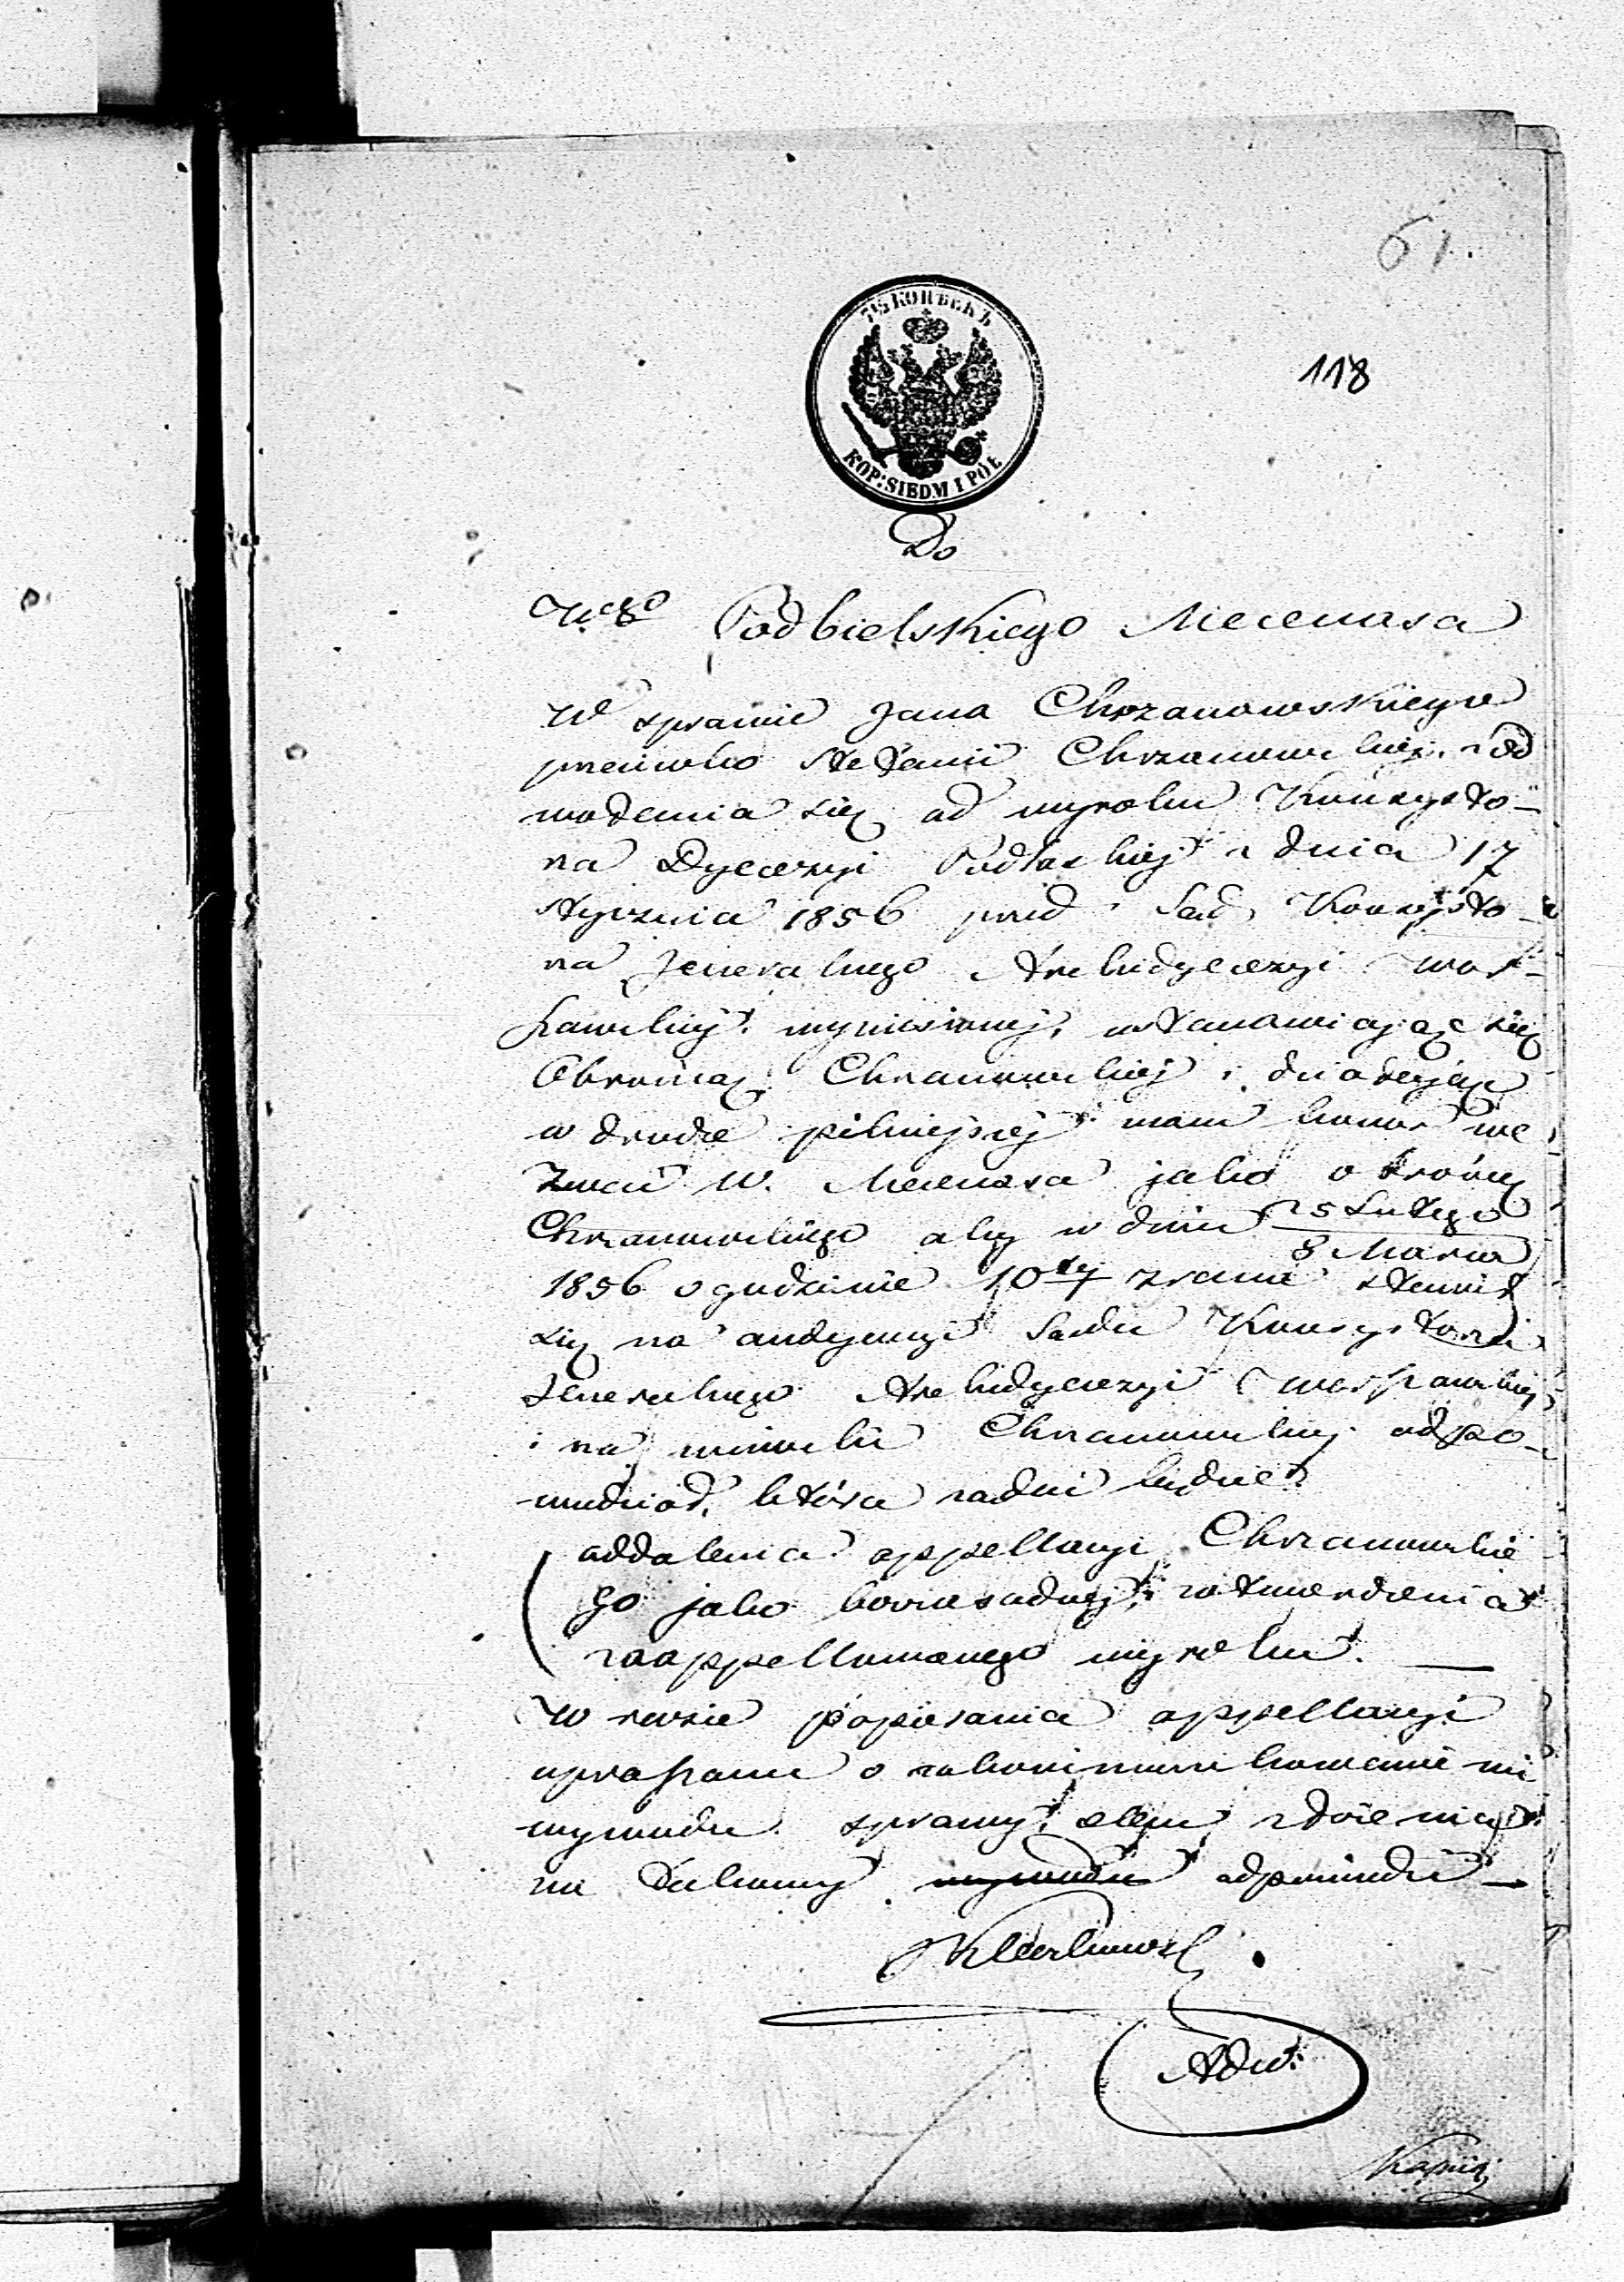 61.
118
7½ КОПѢЕКЪ
KOP: SIEDM I PÓŁ
Do
Wgo Podbielskiego Mecenasa
W sprawie Jana Chrzanowskiego
przeciwko Stefanii Chrzanowskiej, z od
wołania się od wyroku Konsysto-
rza Dyecezyi Podlaskiej z dnia 17
Stycznia 1856 przed Sąd Konsysto-
rza Jeneralnego Archidyecezyi War-
szawskiej wyniesionej, ustanawiając się
Obrońcą Chrzanowskiej i działając
w drodze pilniejszej mam honor we
zwać W. Mecenasa jako obrońcę
Chrzanowskiego aby w dniu 25 Lutego
8 Marca
1856 o godzinie 10tej z rana stawił
się na audyencyi Sądu Konsystorza
Jeneralnego Archidyecezyi Warszawskiej
i na wnioski Chrzanowskiej odpo-
wiedział, która żądać będzie
oddalenia appellacyi Chrzanowskie
go jako bezzasadnej, i zatwierdzenia
zaappellowanego wyroku. —
W razie popierania appellacyi
upraszam o zakommunikowanie mi
wywodu sprawy, celem zdziełania
na takowy wywodu odpowiedzi —
Adw.